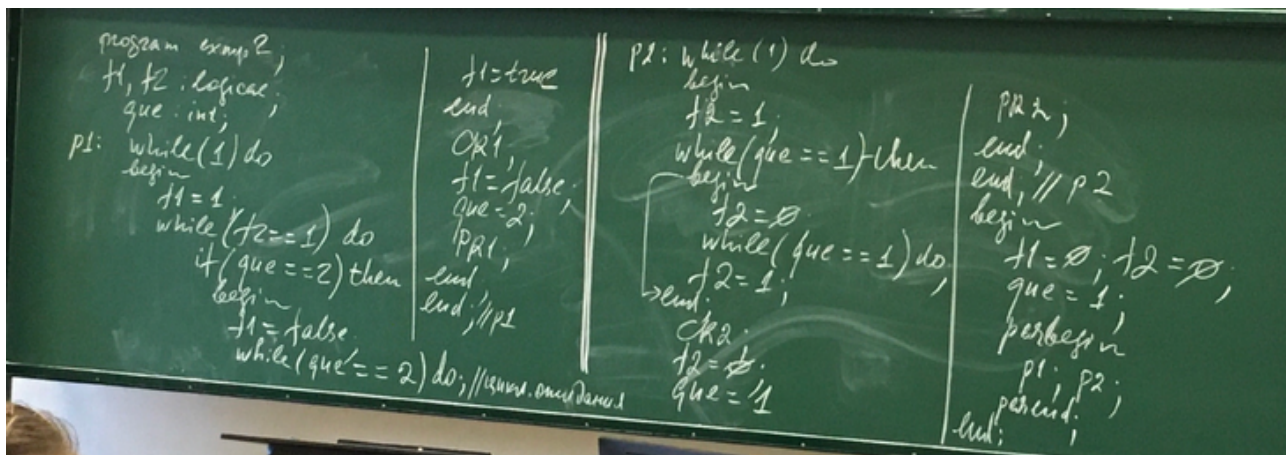 program exmp2;
f1, f2 : logical;
que : int;
p1: while(1) do
begin
f1 = 1;
while(f2 == 1) do
if(que == 2) then
begin
f1 = false;
while(que == 2) do; //цикл. ожидания
f1 = true
end;
CR1;
f1 = false;
que = 2;
PR1;
end
end; //p1
p2: while(1) do
begin
f2 = 1;
while(que == 1) then
begin
f2 = 0;
while(que == 1) do;
f2 = 1;
end;
CR2;
f2 = 0;
que = 1
PR2;
end;
end; // p2
begin
f1 = 0; f2 = 0;
que = 1;
parbegin
p1; p2;
parend;
end;